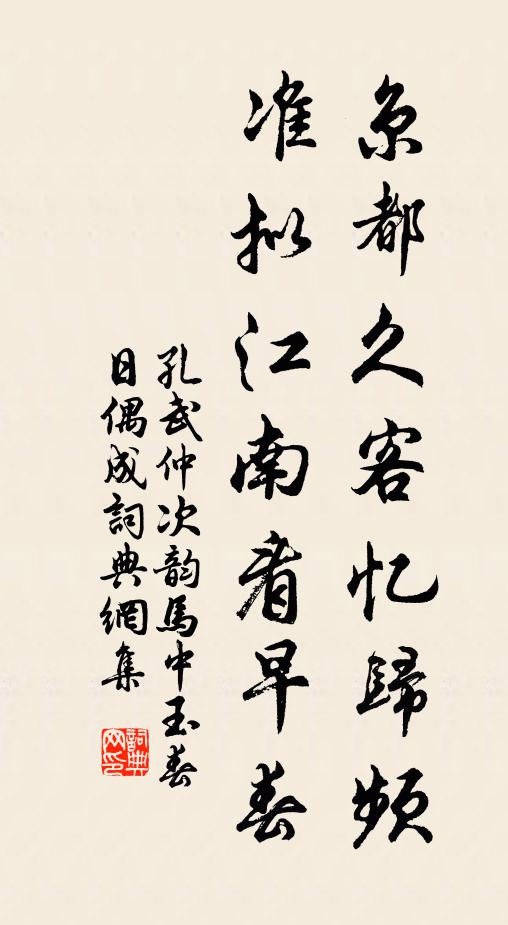 京都久客忆歸頻
准拟江南看早春
孔武仲次韵馬中玉春
日偶成詞典網集
詞典
网印